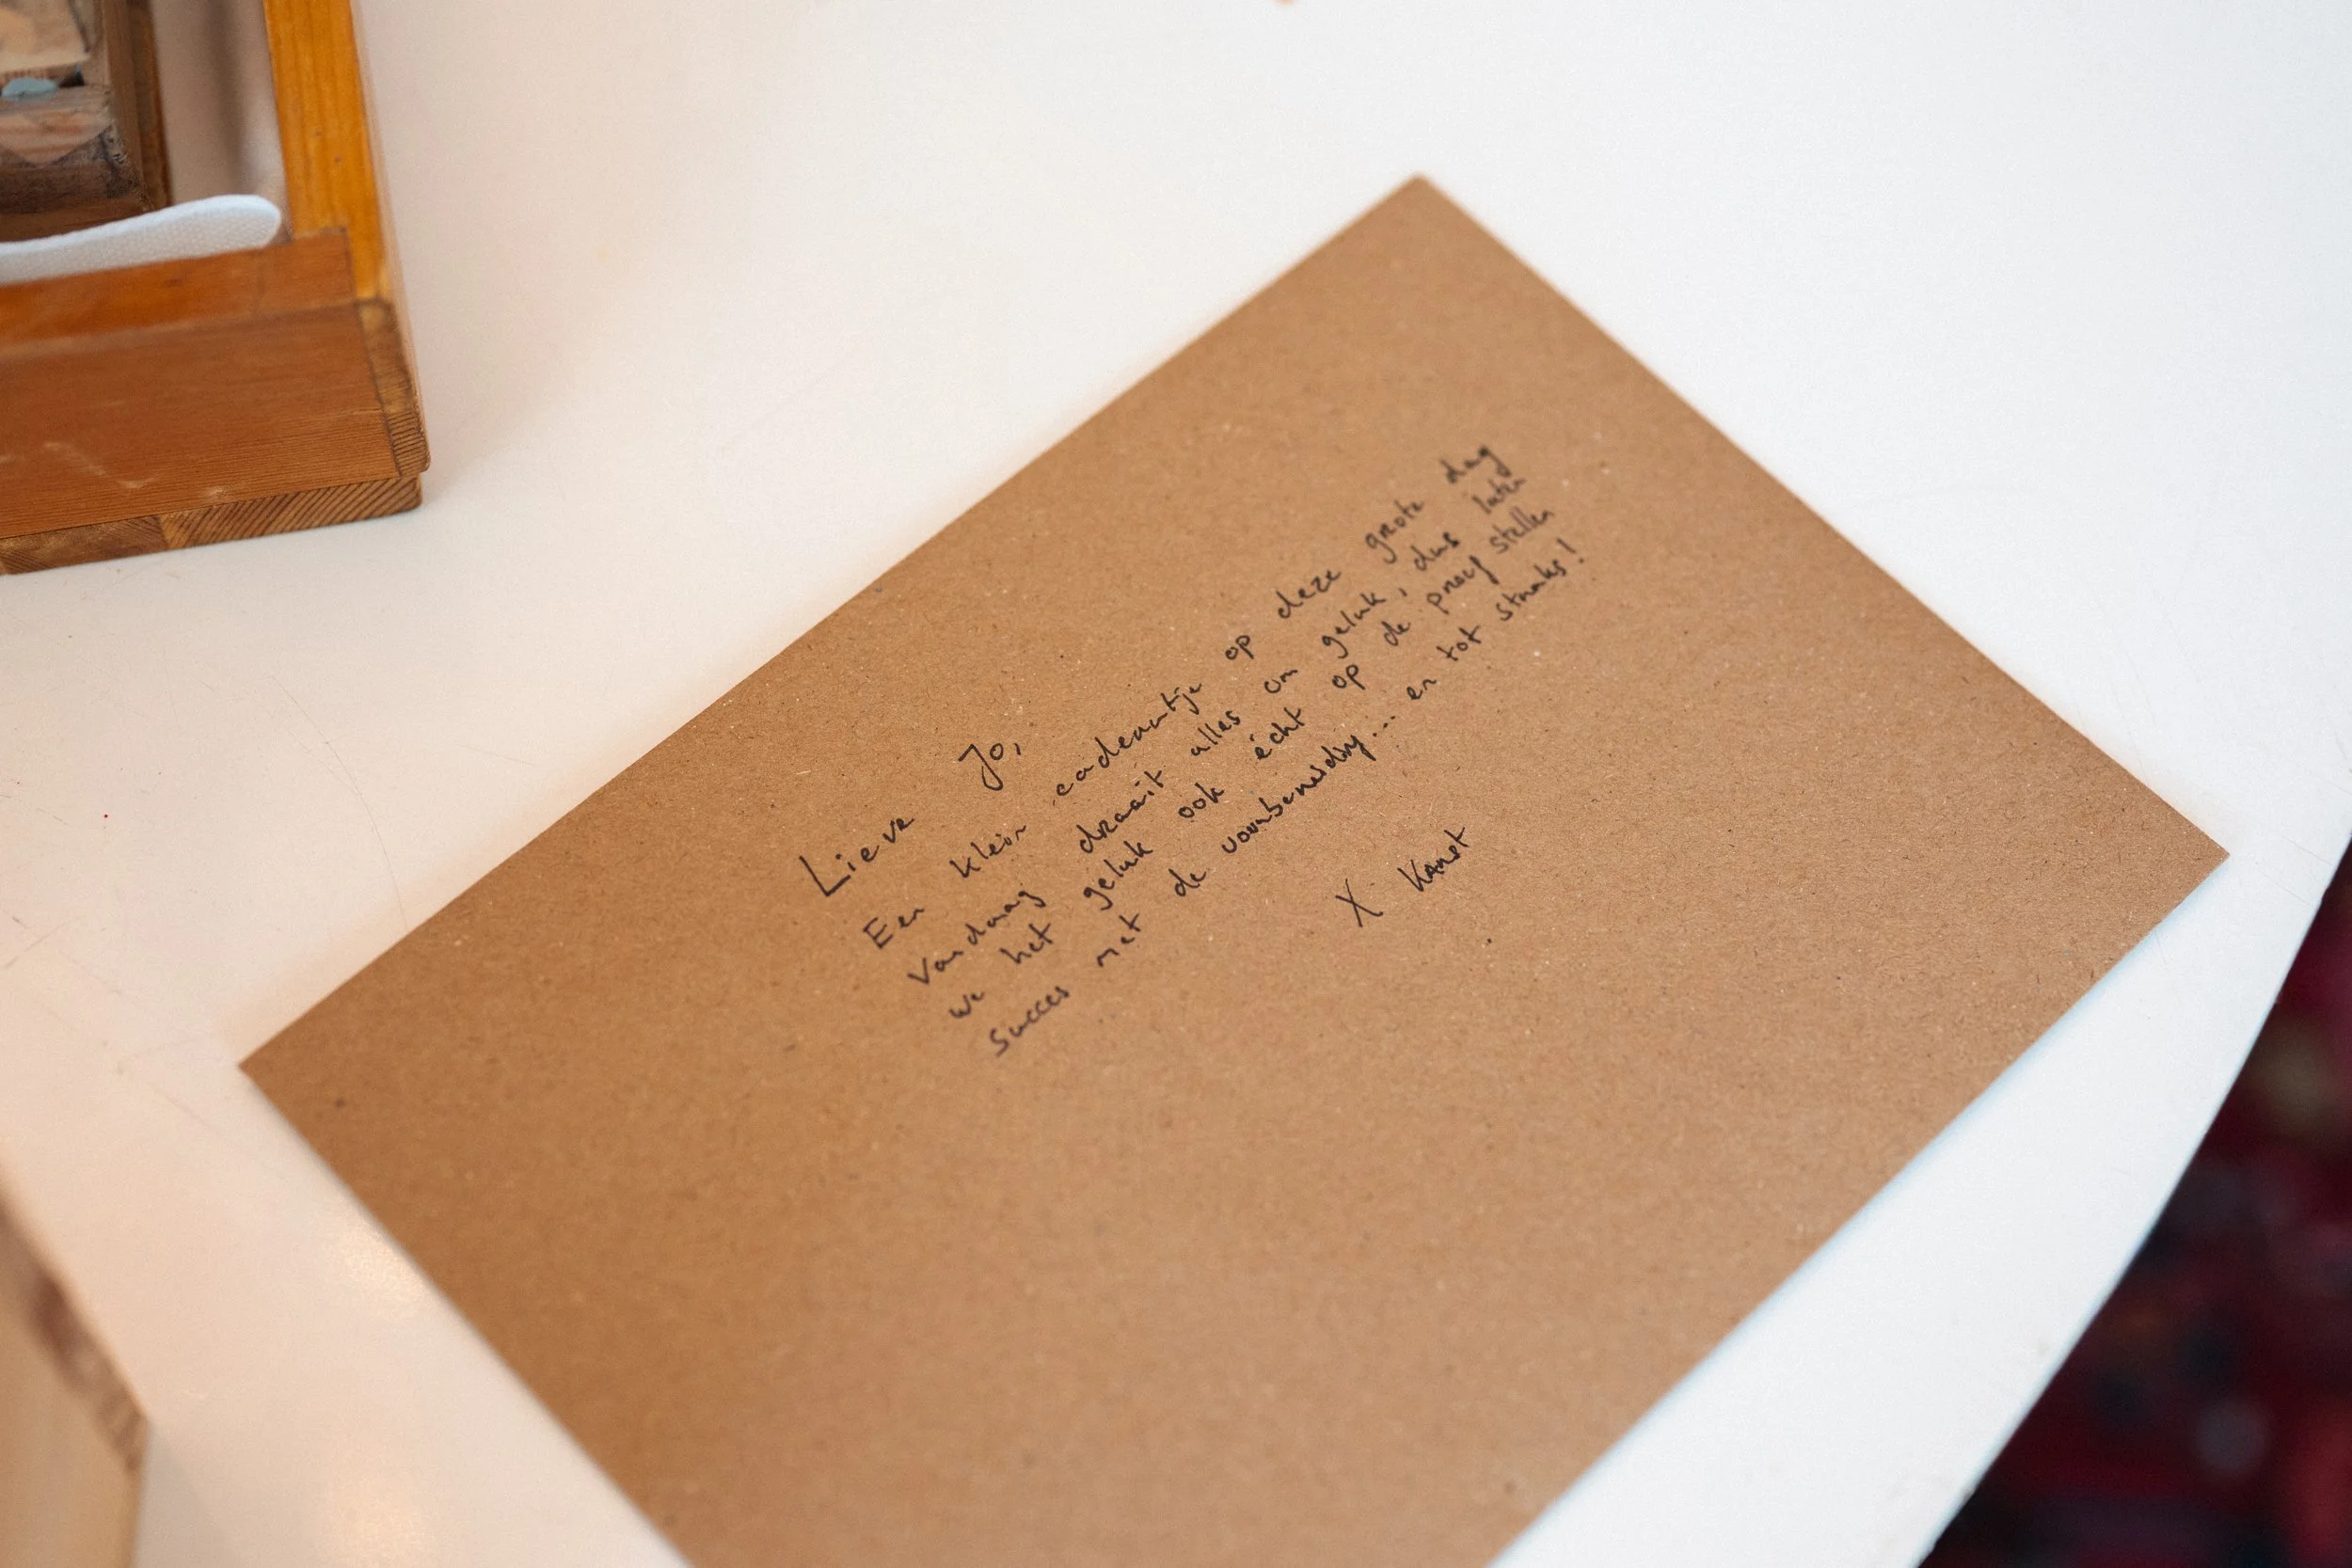 Lieve Jo,
Een klein cadeautje op deze grote dag
Vandaag draait alles om geluk, dus laten
we het geluk ook écht op de proef stellen
Succes met de voorbereiding... en tot straks!
X